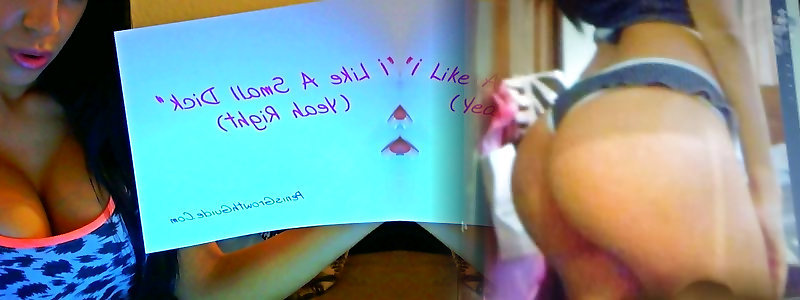 "i Like A Small Dick"
(Yeah Right)
PenisGrowthGuide.Com
"i Like A
(Yea